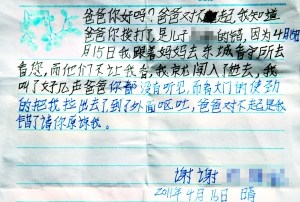 爸爸你好吗？爸爸对不起，我知道
爸爸你挨打了是儿子的错，因为4月
15日我跟着妈妈去东城看守所去
看您，而他们不让我看，我就闯入了进去，我
叫了好几声爸爸你都没有听见，而看大门的使劲
的把我拉出去了到了外面呕吐，爸爸对不起是我
错了请你原谅我。
谢谢
2011年4月16日 晴